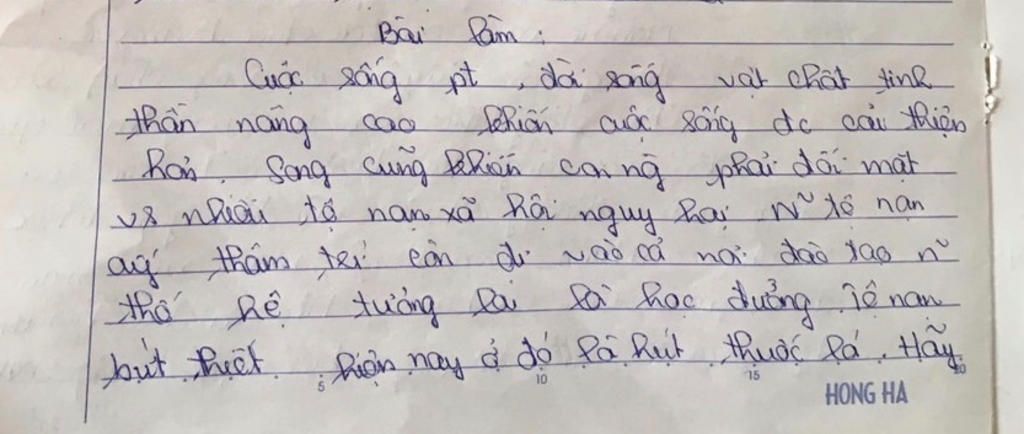 Bài làm:
Cuộc sống pt, đời sống vật chất tinh
thần nâng cao khiến cuộc sống đc cải thiện
hơn. Song cũng khiến con ng phải đối mặt
vs nhiều tệ nạn xã hội nguy hại n~ tệ nạn
ấy thậm trí còn đi vào cả nơi đào tạo n~
thế hệ tương lai là học đường. Tệ nạn
bứt thiết hiện nay ở đó là hút thuốc lá. Hãy
5 10 15 20
HONG HA